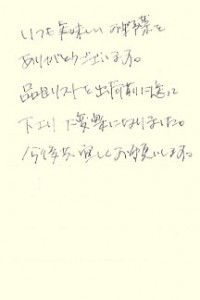 いつも美味しいお野菜を
ありがとうございます。
品目リストを出荷前に送って
下さり大変楽になりました。
今後共、宜しくお願いします。